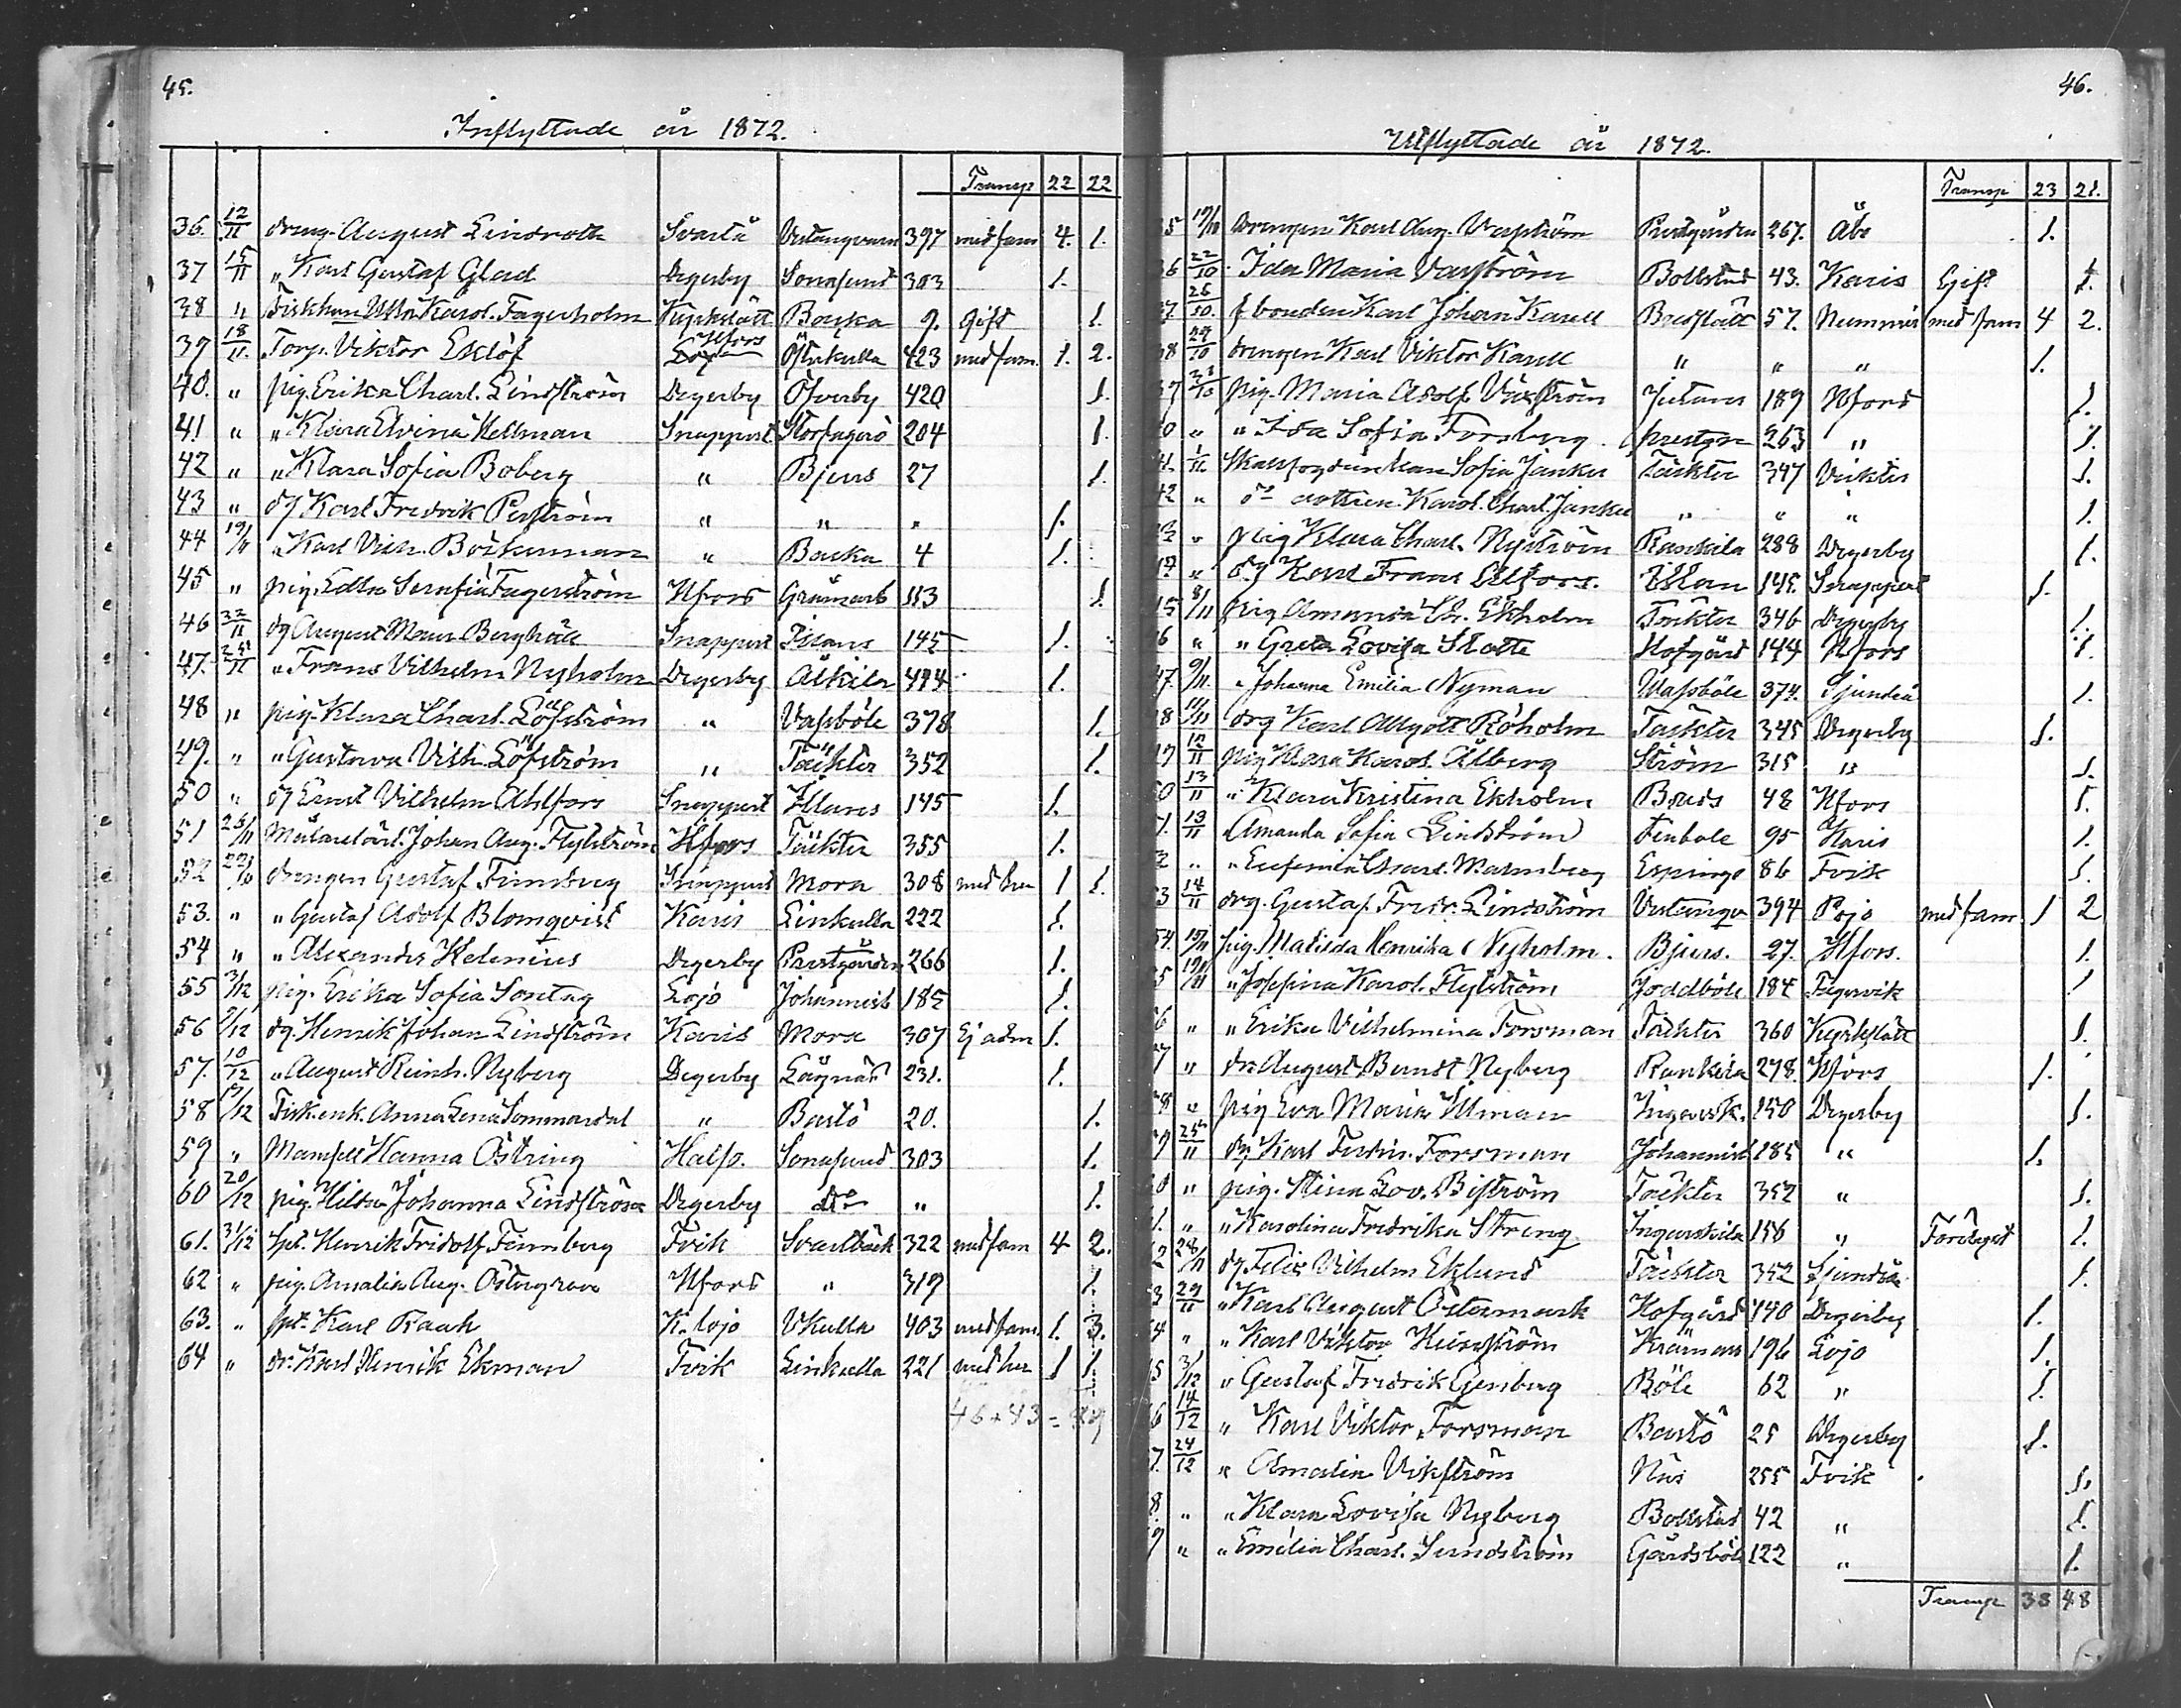 45.
Inflyttade år 1872.
Transp 22 22
36. 12/11 dreng. August Lindroth Svartå Vestanqvarn 397 med fam 4. 1.
37 15/11 „ Karl Gustaf Glad Degerby Sonasund 303 1.
38 „ Karol. Fagerholm Kyrkslätt Backa 9. Gift 1.
39 18/11 Torp. Viktor Eklöf Hfors Österkulla 423 med fam. 1. 2.
40. „ pig. Erika Charl. Lindström Degerby Öfverby 420 1.
41 „ „ Klara Elvina Hellman Snappert. Storfagerö 204 1.
42 „ „ Klara Sofia Boberg „ Bjers 27 1.
43 „ dg Karl Fredrik Perström „ „ „ 1.
44 19/11 „ Karl Vilh. Böckerman „ Backa 4 1.
45 „ pig. Edla Serafia Fagerström Hfors Gråmarb 113 1.
46 22/11 dg August Maur. Berghäll Snappert Illans 145 1.
47. 25/11 „ Frans Vilhelm Nyholm Degerby Älkila 414 1.
48 „ pig. Klara Charl. Löfström „ Vassböle 378 1.
49. „ „ Gustava Vilh. Löfström „ Täkter 352 1.
50 „ dg Ernst Vilhelm Ahlfors Snappert Illans 145 1.
51 26/11 Målarelärl. Johan Aug. Flytström Hfors Täkter 355 1.
52 22/10 drengen Gustaf Finnberg Snappert Mora 308 med hu 1 1.
53. „ „ Gustaf Adolf Blomqvist Karis Linkulla 222 1.
54 „ „ Alexander Helenius Degerby Prestgården 266 1.
55 3/12 pig. Erika Sofia Sontag Lojo Johannisb 185 1.
56 9/12 dg. Henrik Johan Lindström Karis Mora 307 Ej adm 1.
57. 10/12 „ August Reinh. Nyberg Degerby Lågnäs 231. 1.
58 17/12 Fisk.enk. Anna Lena Sommardal „ Bastö 20. 1.
59 „ Mamsell Hanna Östring Half. Sonasund 303 1.
60 20/12 pig. Hilda Johanna Lindström Degerby do „ 1.
61. 31/12 Spt. Henrik Fridolf Finnberg Fvik Svartbäck 322 med fam 4 2.
62 „ pig. Amalia Aug. Östergren Hfors „ 319 1.
63. „ spt. Karl Raak K. lojo Vkulla 403 med fam. 1. 3.
64 „ dr. Karl Henrik Ekman Fvik Linkulla 221 med hu 1 1.
46 + 43 = 89
46.
Utflyttade år 1872.
Transp 23 21.
5 19/10 Drengen Karl Aug. Vasström Prestgården 267. Åbo 1.
36 22/10 Ida Maria Vasström Bollstad 43. Karis Gift 1.
37. 26/10 f bonden Karl Johan Karell Bredslätt 57. Nummis med fam 4 2.
38 29/10 drengen Karl Viktor Karell „ „ „ 1.
39 pig. Maria Adolf. Växström Jutans 189 Hfors 1.
40 „ „ Ida Sofia Forsberg. prestgn 263 „ 1.
41. 1/11 Sofia Janker Täkter 347 Vichtis 1.
42 „ ds dottren Karol. Charl. Janker „ „ „ 1.
43 „ pig Klara Charl. Nyström Rankila 288 Degerby 1.
„ dg Karl Frans Alfors. Illan 145. Snappert 1.
45 8/11 pig Amanda Ekholm Täkter 346 Degerby 1.
46 „ „ Greta Lovisa Slotte Hofgård 144 Hfors 1.
47. 9/11. „ Johanna Emilia Nyman Vassböle 374. Sjundeå 1.
48 11/11 drg Karl Allgott Röholm Täkter 345 Degerby 1.
49 12/11 pig Klara Karol. Ålberg Ström 315 „ 1.
50 13/11 „ Klara Kristina Ekholm Breds 48 Hfors 1.
51. 13/11 Amanda Sofia Lindström Finbole 95 Karis 1.
52 „ „ Eufemia Charl. Malmberg Espings 86 Fvik 1.
53 14/11 drg. Gustaf Fredr. Lindström Vestanqv 394 Pojo med fam. 1 2
54. 15/11 pig. Matilda Henrika Nyholm. Bjers. 27. Hfors. 1.
55 19/11 „ Josefina Karol. Flytström Joddböle 184 Fagervik 1
56 „ „ Erika Vilhelmina Forsman Täkter 360 Kyrkslätt 1.
57 „ dr. August Berndt Nyberg Rankila 278. Hfors 1.
58 „ pig Eva Maria Ulman Ingarsk. 150 Degerby 1.
59 25/11 dg Karl Ferdin. Forsman Johannisb 185 „ 1.
60 „ pig. Stina Lov. Biström Täkter 352 „ 1.
61. „ „ Karolina Fredrika Streng Ingarskila 158 „ Företaget 1.
62 28/11 dg Felix Vilhelm Eklund Täckter 352 Sjundeå 1.
63 29/11 „ Karl August Östermark Hofgård 140 Degerby 1.
64 „ „ Karl Viktor Kursström Kråmars 196 Lojo 1.
65 3/12 „ Gustaf Fredrik Genberg Böle 62 „ 1.
66 14/12 „ Karl Viktor Forsman Bastö 25 Degerby 1.
67. 24/12 „ Amalia Vikström Näs 255 Fvik 1.
68. „ „ Klara Lovisa Nyberg Bollstad 42 „ 1.
69 „ „ Emilia Charl. Sundström Gårdsböle 122 „ 1.
Transp 38 48